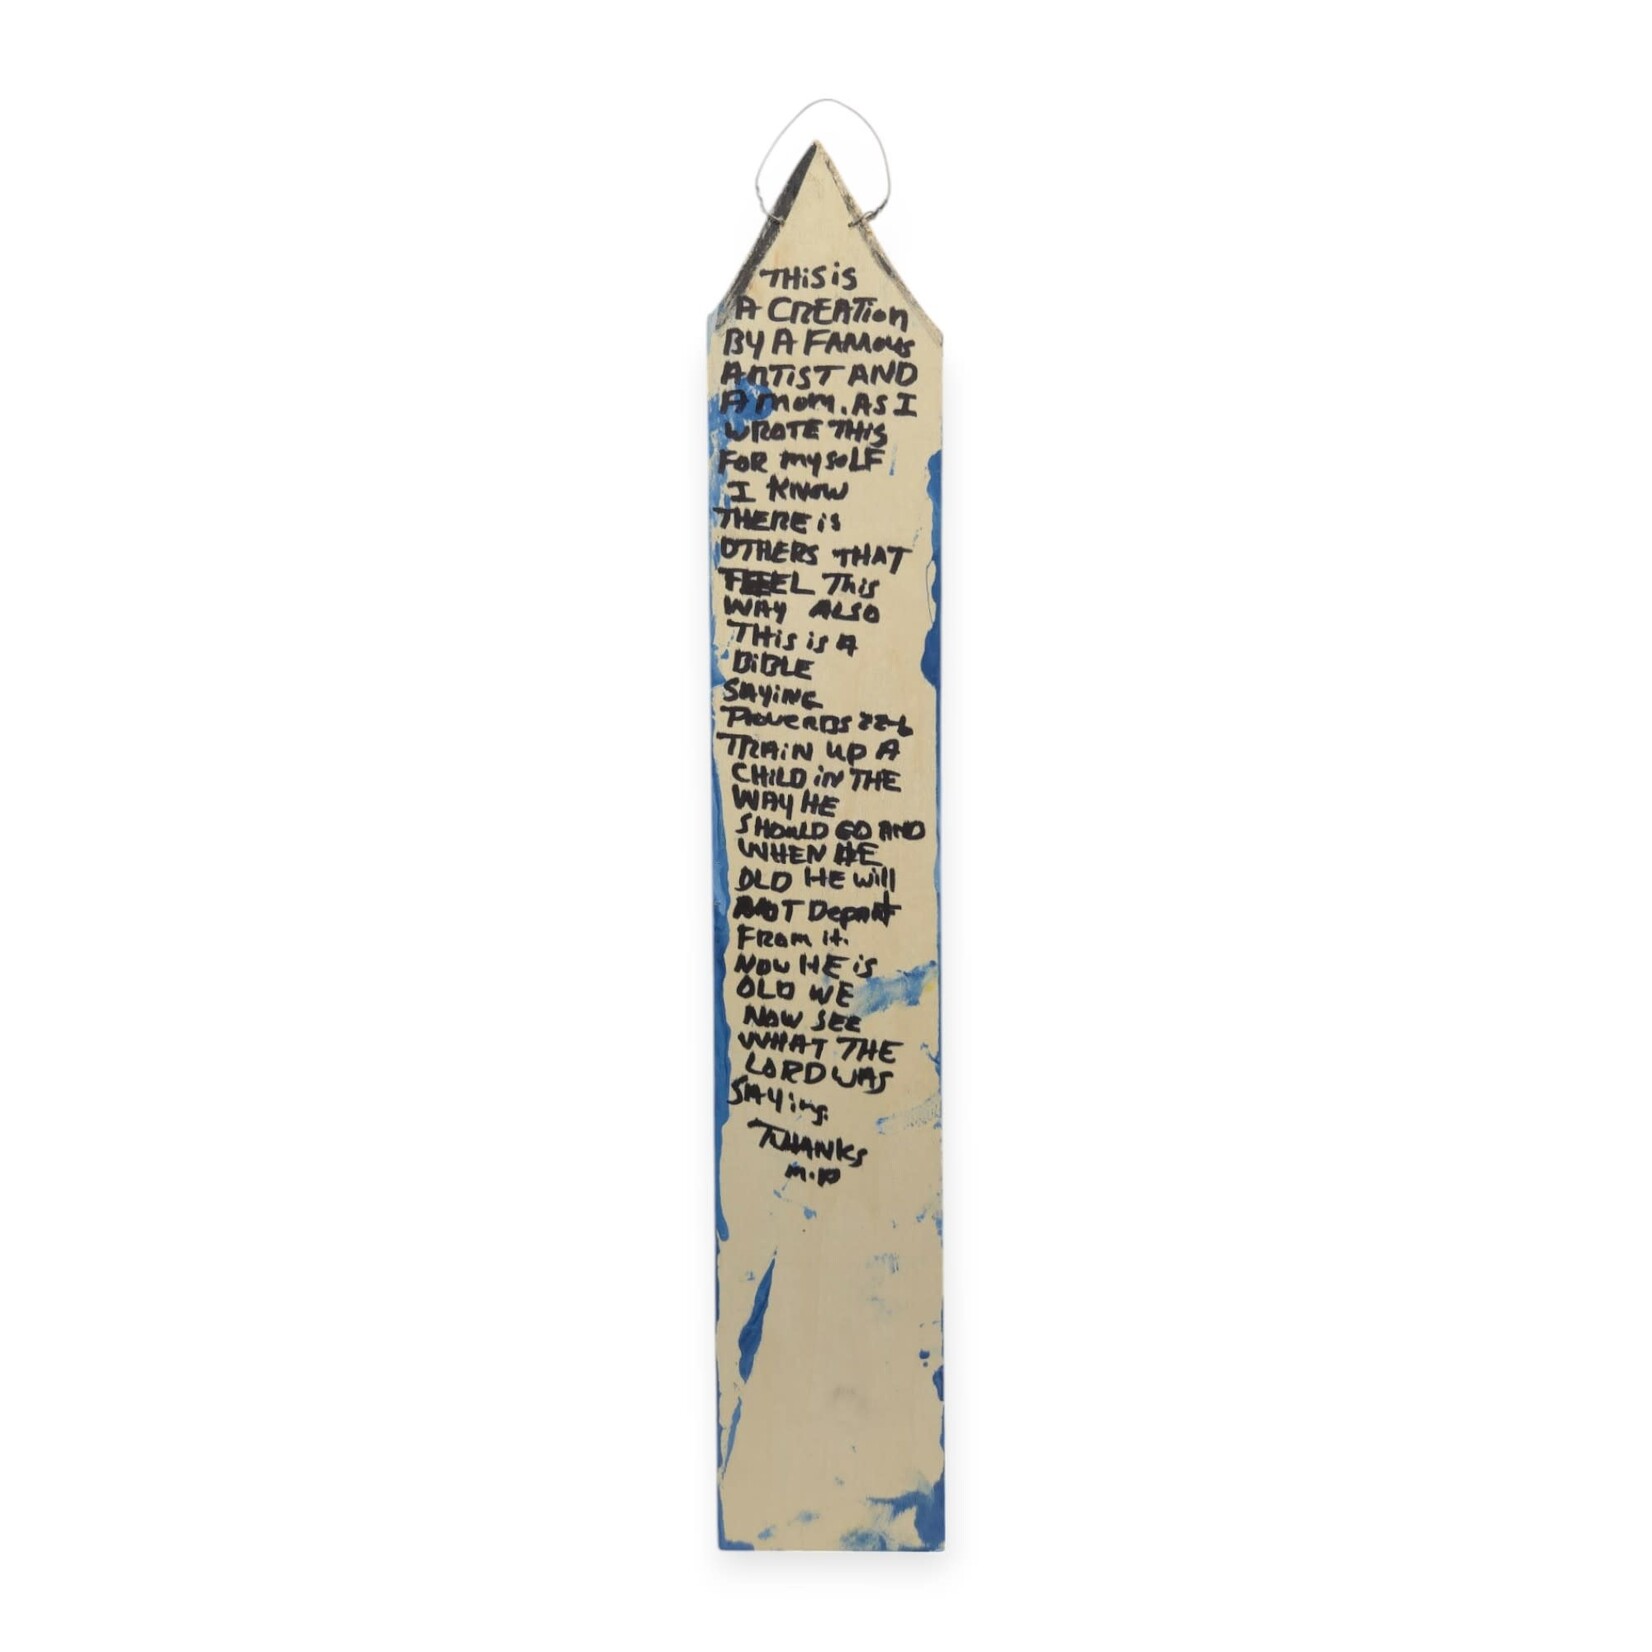 THiS iS
A CREATion
BY A FAMOUS
ARTiST AND
A MOM. AS I
WROTE THiS
FOR MYSOLF
I KNOW
THERE iS
OTHERS THAT
FEEL THiS
WAY ALSO
THiS iS A
BiBLE
SAYiNG
PROVERBS 22-6
TRAiN UP A
CHiLD iN THE
WAY HE
SHOULD GO AND
WHEN HE
OLD HE Will
NOT Depart
FROM it.
NOW HE iS
OLD WE
NOW SEE
WHAT THE
LORD WAS
SAYing.
THANKS
M.P